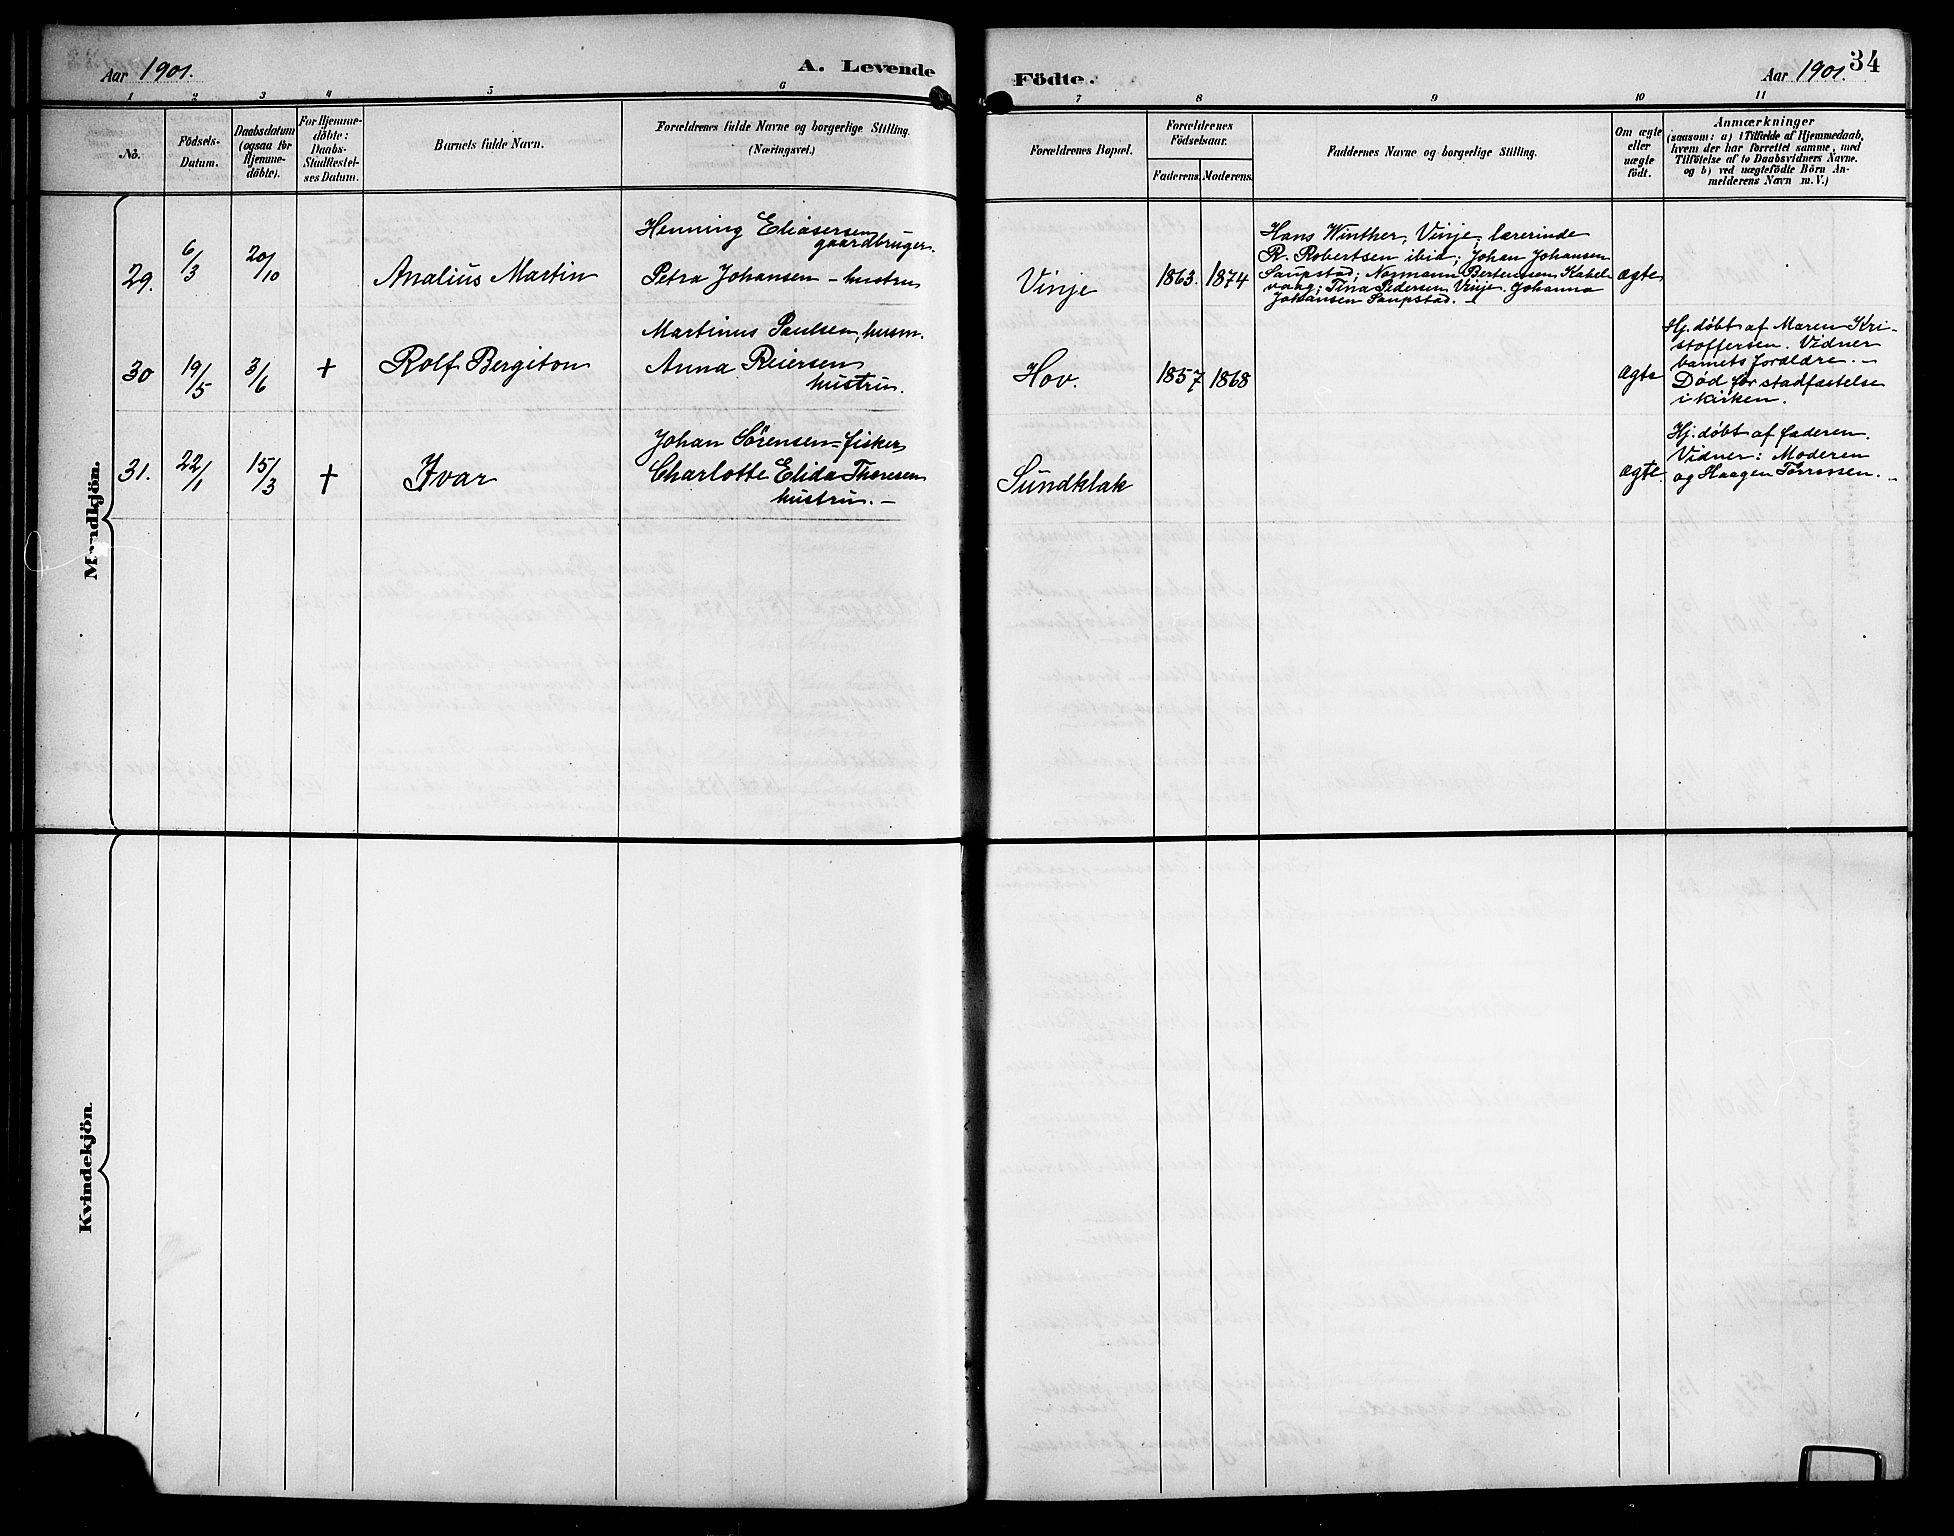 Aar 1901.
A. Levende
Födte.
34
Aar 1901.
1 2 3 4 5 6 7 8 9 10 11
No.
Födsels-
Datum.
Daabsdatum
(ogsaa for
Hjemme-
døbte).
For Hjemme-
døbte:
Daabs-
Stadfæstel-
ses Datum.
Barnets fulde Navn.
Forældrenes fulde Navne og borgerlige Stilling.
(Næringsvei.)
Forældrenes Bopæl.
Forældrenes
Födselsaar.
Faderens. Moderens.
Faddernes Navne og borgerlige Stilling.
Om ægte
eller
uægte
födt.
Anmærkninger
(saasom: a) i Tilfælde af Hjemmedaab,
hvem der har forrettet samme, med
Tilföielse af to Daabsvidners Navne.
og b) ved uægtefödte Börn An-
melderens Navn m. V.)
Mandkjön.
29.
6/3
20/10
Analius Martin
Henning Eliasersen
gaardbruger.
Petra Johansen - hustru
Vinje
1863. 1874
Hans Winther, Vinje; lærerinde
R. Robertsen ibid; Johan Johansen
Saupstad; Normann Berteussen Kabel-
vaag; Tina Pedersen Vinje. Johanna
Johansen Saupstad. -
ægte
30
19/5
3/6
+
Rolf Bergiton
Martinus Paulsen, husm.
Anna Reiersen
hustru.
Hov.
1857 1868
ægte
Hj. døbt af Maren Kri-
stoffersen. Vidner
barnets forældre. -
Død før stadfæstelse
i kirken.
31.
22/1
15/3
+
Ivar
Johan Sørensen - fisker
Charlotte Elida Thoresen
hustru. -
Sundklak
ægte.
Hj. døbt af faderen.
Vidner: Moderen
og Haagen Torrssen. -
Kvindekjön.